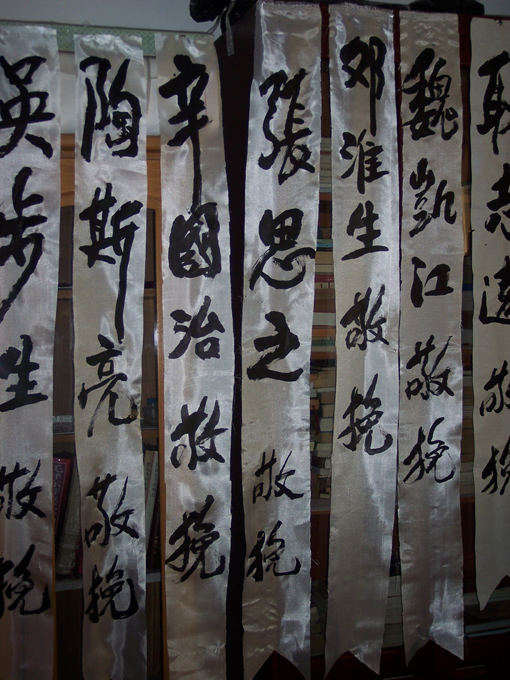 吳步生敬挽
陶斯亮敬挽
辛國治敬挽
張思之敬挽
邓淮生敬挽
魏凱江敬挽
耿志遠敬挽